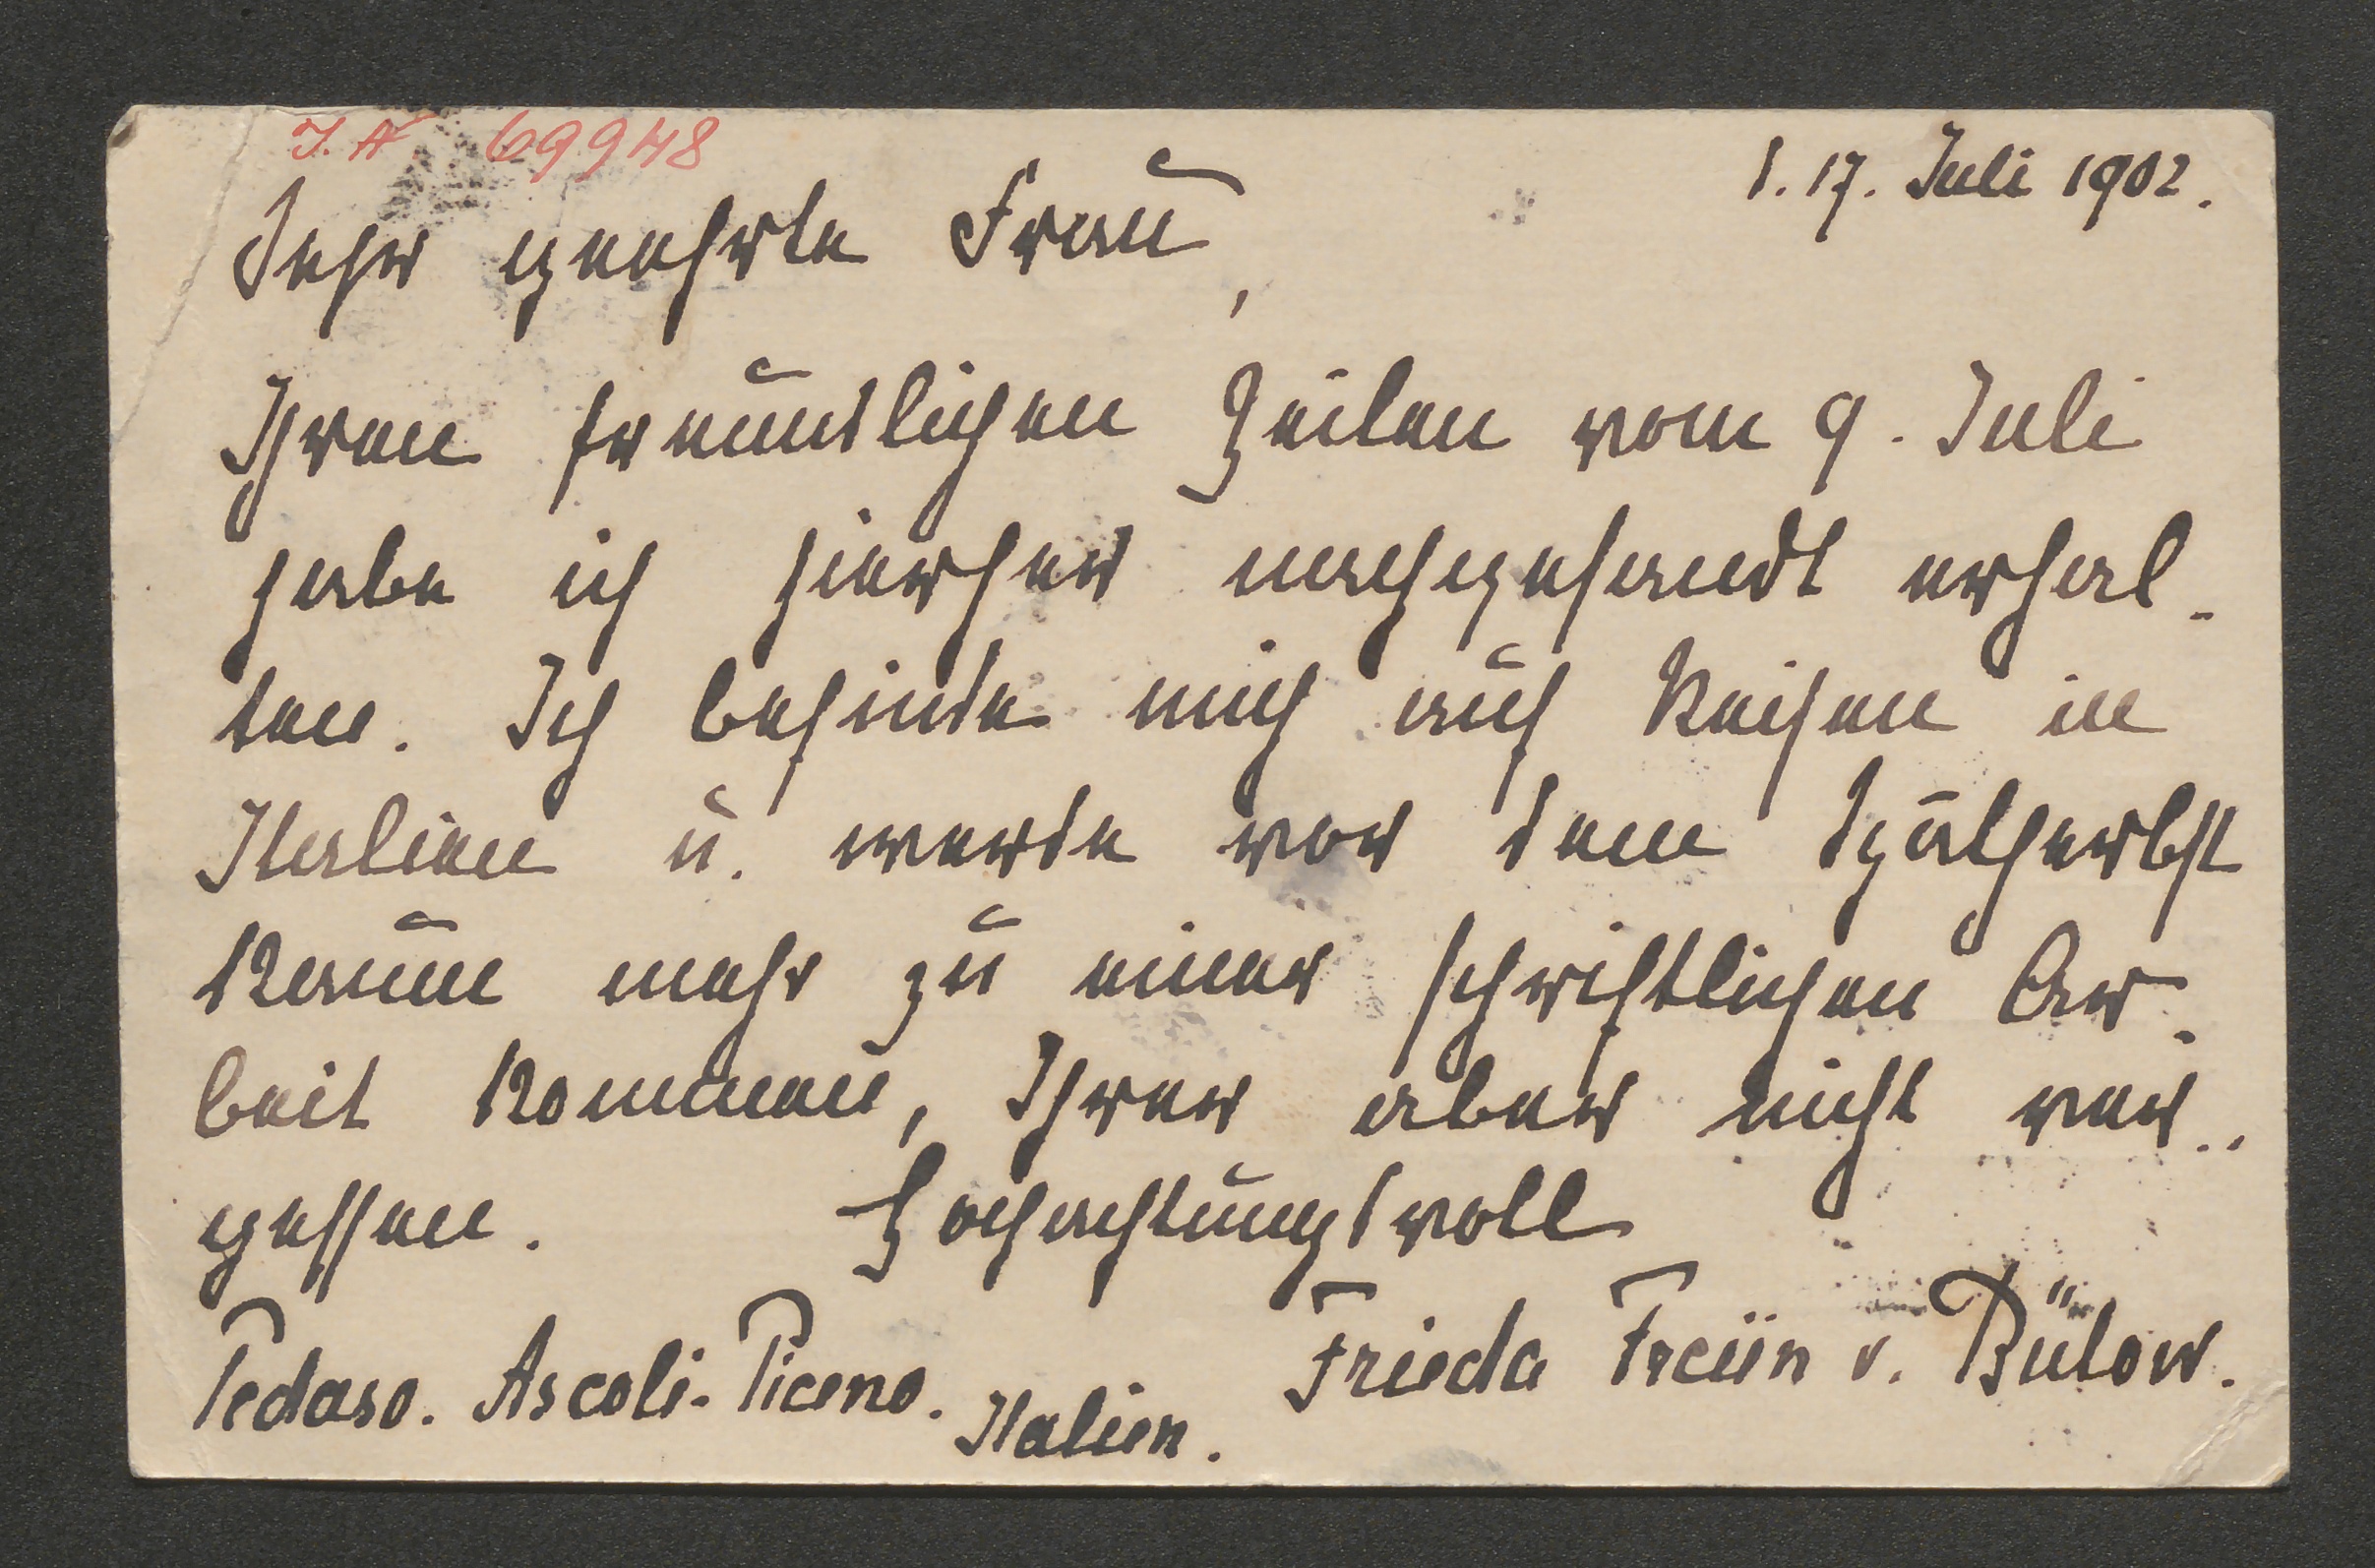 I. N. 69948
d. 17. Juli 1902.
Sehr geehrte Frau,
Ihren freundlichen Zeilen vom 9. Juli
habe ich hierher nachgesandt erhal-
ten. Ich befinde mich auf Reisen in
Italien u. werde vor dem Spätherbst
kaum mehr zu einer schriftlichen Ar-
beit kommen, Ihrer aber nicht ver-
gessen. Hochachtungsvoll
Frieda Freiin v. Bülow.
Pedaso. Ascoli-Piceno. Italien.